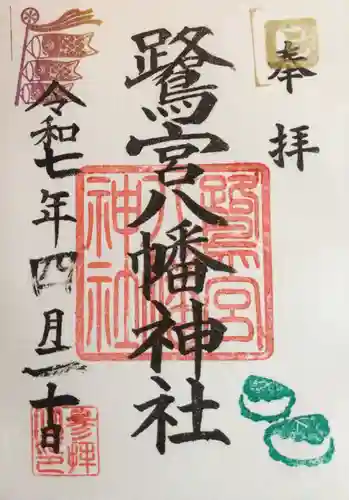 奉拝
鷺宮八幡神社
令和七年四月二十日
鷺宮
八幡
神社
参拝